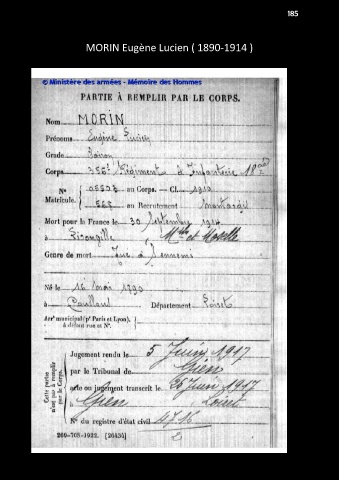 185
MORIN Eugène Lucien ( 1890-1914 )
© Ministère des armées - Mémoire des Hommes
PARTIE À REMPLIR PAR LE CORPS.
Nom MORIN
Prénoms Eugène Lucien
Grade
Corps Régiment d'Infanterie
N° au Corps. — Cl. 1910
Matricule. au Recrutement Montargis
Mort pour la France le 30 Septembre 1914
à Mthe et Moselle
Genre de mort Tué à l'ennemi
Né le 16 Mai 1890
à Département Loiret
Arrt municipal (pr Paris et Lyon),
à défaut rue et N°.
Cette partie
n'est pas à remplir
par le Corps.
Jugement rendu le 5 Juin 1917
par le Tribunal de Gien
acte ou jugement transcrit le 25 Juin 1917
à Gien Loiret
N° du registre d'état civil
260-708-1922. [26434]